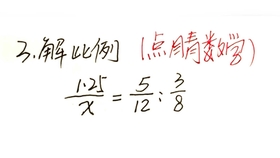 3.解比例 (点睛数学)
1.25/x = 5/12 : 3/8